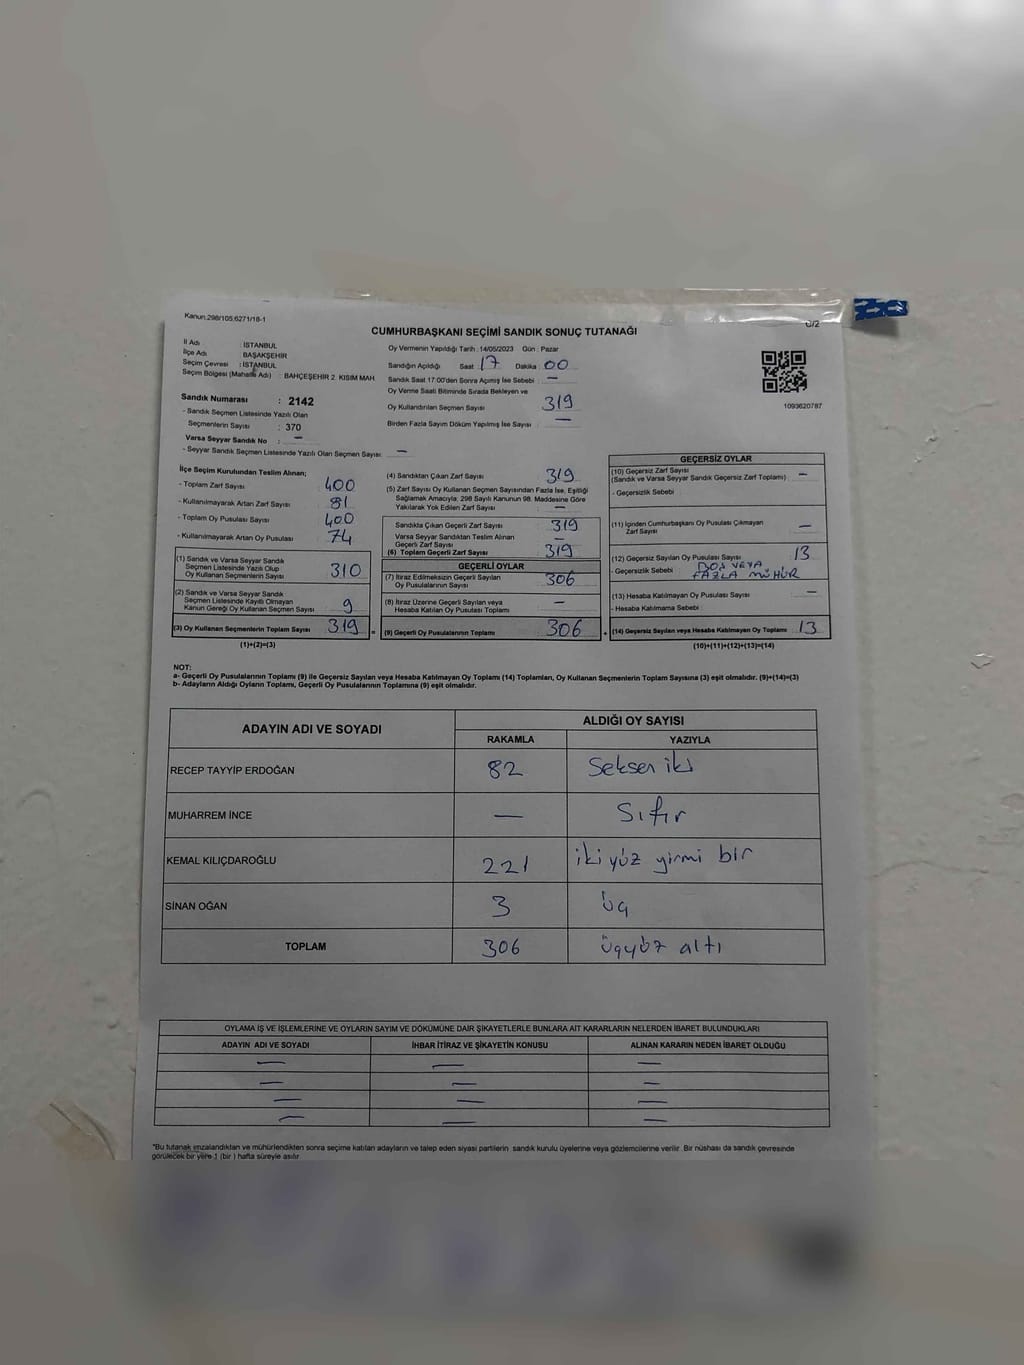 Kanun.298/105,6271/18-1
C/2
CUMHURBAŞKANI SEÇİMİ SANDIK SONUÇ TUTANAĞI
İl Adı : İSTANBUL
İlçe Adı : BAŞAKŞEHİR
Seçim Çevresi : İSTANBUL
Seçim Bölgesi (Mahalle Adı) : BAHÇEŞEHİR 2. KISIM MAH.
Sandık Numarası : 2142
- Sandık Seçmen Listesinde Yazılı Olan
Seçmenlerin Sayısı : 370
Varsa Seyyar Sandık No : —
- Seyyar Sandık Seçmen Listesinde Yazılı Olan Seçmen Sayısı: —
Oy Vermenin Yapıldığı Tarih : 14/05/2023 Gün : Pazar
Sandığın Açıldığı Saat : 17 Dakika : 00
Sandık Saat 17:00'den Sonra Açılmış İse Sebebi : —
Oy Verme Saati Bitiminde Sırada Bekleyen ve
Oy Kullandırılan Seçmen Sayısı : 319
Birden Fazla Sayım Döküm Yapılmış İse Sayısı : —
1093620787
İlçe Seçim Kurulundan Teslim Alınan;
- Toplam Zarf Sayısı : 400
- Kullanılmayarak Artan Zarf Sayısı : 81
- Toplam Oy Pusulası Sayısı : 400
- Kullanılmayarak Artan Oy Pusulası : 74
(1) Sandık ve Varsa Seyyar Sandık
Seçmen Listesinde Yazılı Olup
Oy Kullanan Seçmenlerin Sayısı : 310
(2) Sandık ve Varsa Seyyar Sandık
Seçmen Listesinde Kayıtlı Olmayan
Kanun Gereği Oy Kullanan Seçmen Sayısı : 9
(3) Oy Kullanan Seçmenlerin Toplam Sayısı : 319 =
(1)+(2)=(3)
(4) Sandıktan Çıkan Zarf Sayısı : 319
(5) Zarf Sayısı Oy Kullanan Seçmen Sayısından Fazla İse, Eşitliği
Sağlamak Amacıyla; 298 Sayılı Kanunun 98. Maddesine Göre
Yakılarak Yok Edilen Zarf Sayısı : —
Sandıkta Çıkan Geçerli Zarf Sayısı : 319
Varsa Seyyar Sandıktan Teslim Alınan
Geçerli Zarf Sayısı : —
(6) Toplam Geçerli Zarf Sayısı : 319
GEÇERLİ OYLAR
(7) İtiraz Edilmeksizin Geçerli Sayılan
Oy Pusulalarının Sayısı : 306
(8) İtiraz Üzerine Geçerli Sayılan veya
Hesaba Katılan Oy Pusulası Toplamı : —
(9) Geçerli Oy Pusulalarının Toplamı : 306 +
GEÇERSİZ OYLAR
(10) Geçersiz Zarf Sayısı
(Sandık ve Varsa Seyyar Sandık Geçersiz Zarf Toplamı) : —
- Geçersizlik Sebebi :
(11) İçinden Cumhurbaşkanı Oy Pusulası Çıkmayan
Zarf Sayısı : —
(12) Geçersiz Sayılan Oy Pusulası Sayısı : 13
- Geçersizlik Sebebi : BOŞ VEYA
FAZLA MÜHÜR
(13) Hesaba Katılmayan Oy Pusulası Sayısı : —
- Hesaba Katılmama Sebebi :
(14) Geçersiz Sayılan veya Hesaba Katılmayan Oy Toplamı : 13
(10)+(11)+(12)+(13)=(14)
NOT:
a- Geçerli Oy Pusulalarının Toplamı (9) ile Geçersiz Sayılan veya Hesaba Katılmayan Oy Toplamı (14) Toplamları, Oy Kullanan Seçmenlerin Toplam Sayısına (3) eşit olmalıdır. (9)+(14)=(3)
b- Adayların Aldığı Oyların Toplamı, Geçerli Oy Pusulalarının Toplamına (9) eşit olmalıdır.
ADAYIN ADI VE SOYADI ALDIĞI OY SAYISI
RAKAMLA YAZIYLA
RECEP TAYYİP ERDOĞAN 82 Seksen iki
MUHARREM İNCE — Sıfır
KEMAL KILIÇDAROĞLU 221 iki yüz yirmi bir
SİNAN OĞAN 3 üç
TOPLAM 306 üçyüz altı
OYLAMA İŞ VE İŞLEMLERİNE VE OYLARIN SAYIM VE DÖKÜMÜNE DAİR ŞİKAYETLERLE BUNLARA AİT KARARLARIN NELERDEN İBARET BULUNDUKLARI
ADAYIN ADI VE SOYADI İHBAR İTİRAZ VE ŞİKAYETİN KONUSU ALINAN KARARIN NEDEN İBARET OLDUĞU
— — —
— — —
— — —
— — —
*Bu tutanak imzalandıktan ve mühürlendikten sonra seçime katılan adayların ve talep eden siyasi partilerin sandık kurulu üyelerine veya gözlemcilerine verilir. Bir nüshası da sandık çevresinde
görülecek bir yere 1 (bir) hafta süreyle asılır.